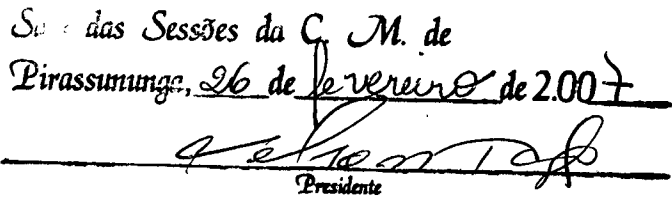 das Sessões da C. M. de
Pirassununga, 26 de fevereiro de 2.007
Presidente